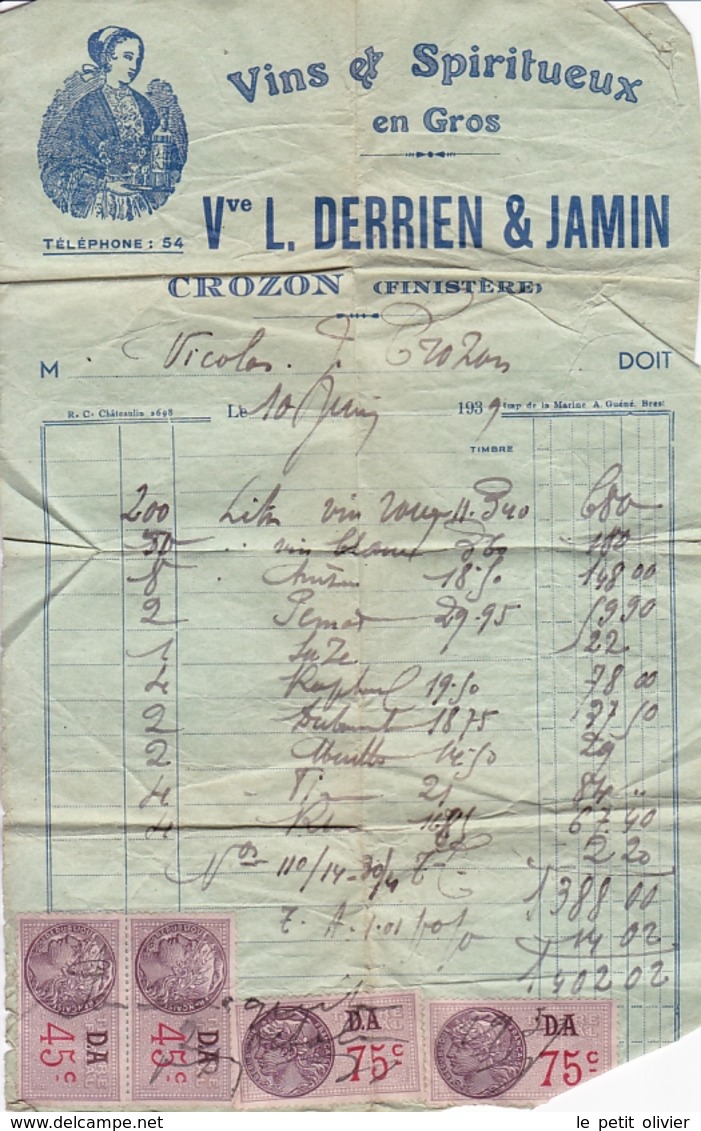 Vins & Spiritueux
en Gros
TÉLÉPHONE : 54
Vve L. DERRIEN & JAMIN
CROZON (FINISTÈRE)
M Nicolas Crozon DOIT
R. C. Châteaulin 2698 Le 10 Juin 1939 Imp. de la Marine A. Guéné, Brest
TIMBRE
200 Lits vin rouge 11° 340 680
50 " vin blanc 360 180
8 18.50 148 00
2 29.95 59 90
1 Suze 22
4 Raphael 19.50 78 00
2 Dubonnet 18 75 37 50
2 14.50 29
4 21 84 "
4 16.85 67 40
110/14 2 20
1388 00
T. A. 1.01 % 14 02
1402 02
45c DA
45c DA
DA 75c
DA 75c
le petit olivier